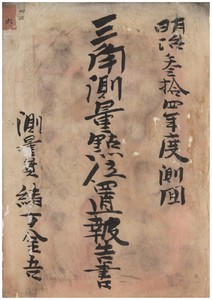 明治参拾四年度測圖
三角測量點位置報告書
測量員 緒方金吾